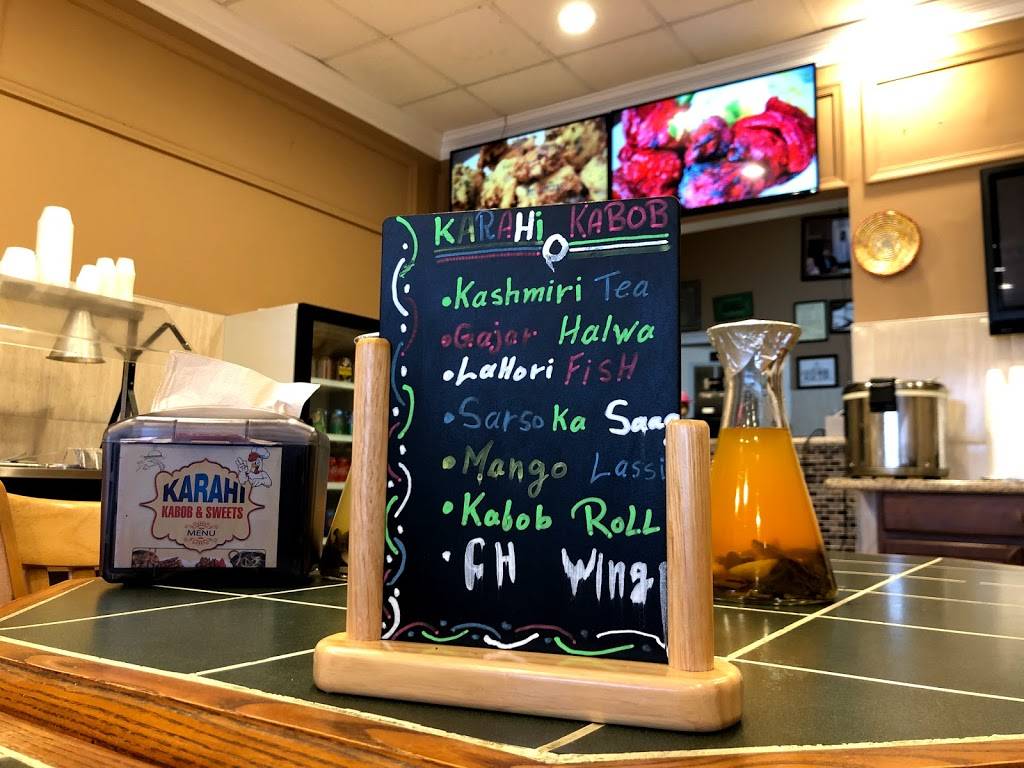 KARAHi KABOB
• Kashmiri Tea
• Gajar Halwa
• LaHori FisH
• Sarso Ka Saag
• Mango Lassi
• Kabob RoLL
• CH Wings
KARAHI
KABOB & SWEETS
MENU